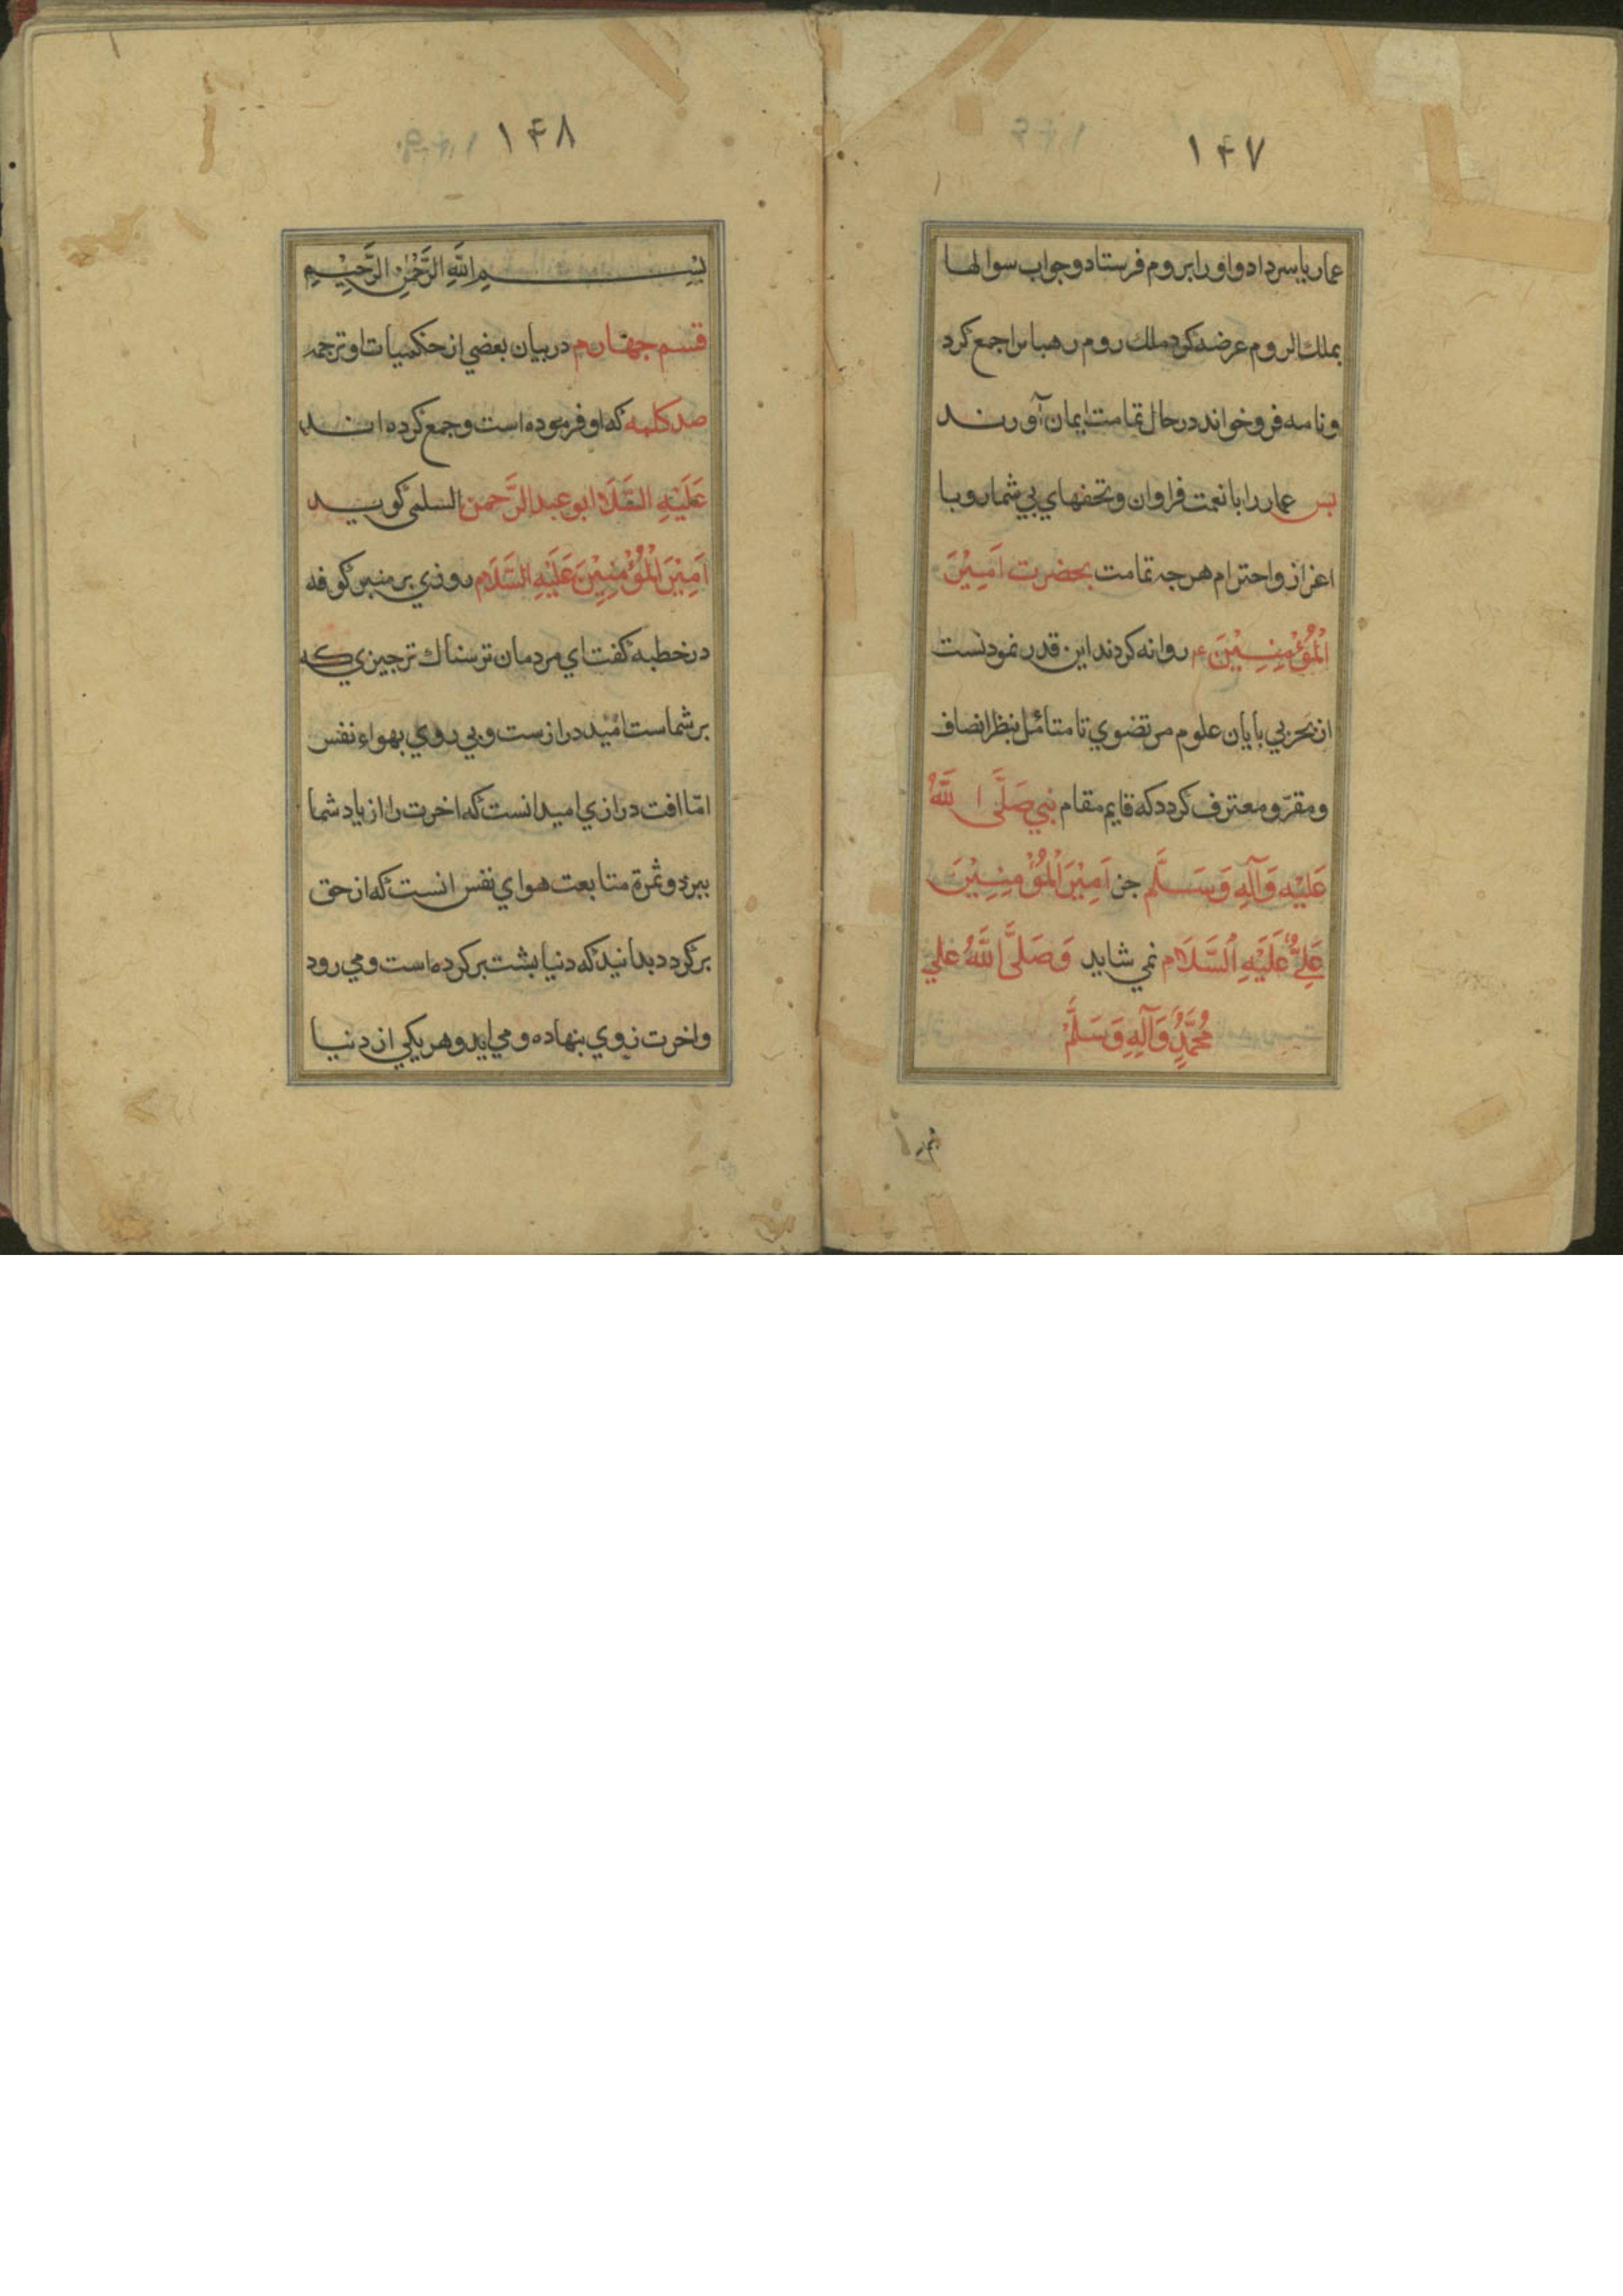 ١۴٧
عمار یاسر داد و او را بروم فرستاد و جواب سوالها
بملك الروم عرضه کرد ملك روم رهبانرا جمع کرد
و نامه فرو خواند در حال تمامت ایمان آوردند
بس عمار را با نعمت فراوان و تحفهاي بي شمار و با
اعزاز و احترام هرجه تمامت بحضرت اَمِيْرَ
الْمُؤْمِنِيْنَ ع روانه کردند این قدر نمودنست
از بحر بي بایان علوم مرتضوي تا متأمل بنظر انصاف
و مقرّ و معترف کردد که قایم مقام نبي صَلَّی اللَّهُ
عَلَيْهِ وَآلِهِ وَسَلَّم جز اَمِيْرَ الْمُؤْمِنِيْنَ
عَلِيٌّ عَلَيْهِ السَّلَام نمي شاید وَصَلَّی اللَّهُ عَلي
مُحَمَّدٍ وَآلِهِ وَسَلَّمْ
١۴٨
بِسْمِ اللَّهِ الرَّحْمٰنِ الرَّحِيْمِ
قسم جهارم در بیان بعضي از حکمیات او و ترجمه
صد کلمه که او فرموده است و جمع کرده اند
عَلَيْهِ السَّلَام ابو عبد الرَّحمن السلمي کوید
اَمِيْرَ الْمُؤْمِنِيْنَ عَلَيْهِ السَّلَام روزي بر منبر کوفه
در خطبه کفت اي مردمان ترسناك تر جیزي که
بر شماست امّید درازست و بي روي بهواء نفس
امّا افت درازي امید انست که اخرت را از یاد شما
ببرد و ثمرة متابعت هواي نفس انست که از حق
برکردد بدانید که دنیا بشت برکرده است و مي رود
و اخرت روي بنهاده و مي اید و هر یکي از دنیا